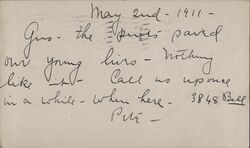 May 2nd - 1911 -
Gus - the prints saved
our young lives - Nothing
like it - Call us up once
in a while - when here - 3848 Bell
Pete -